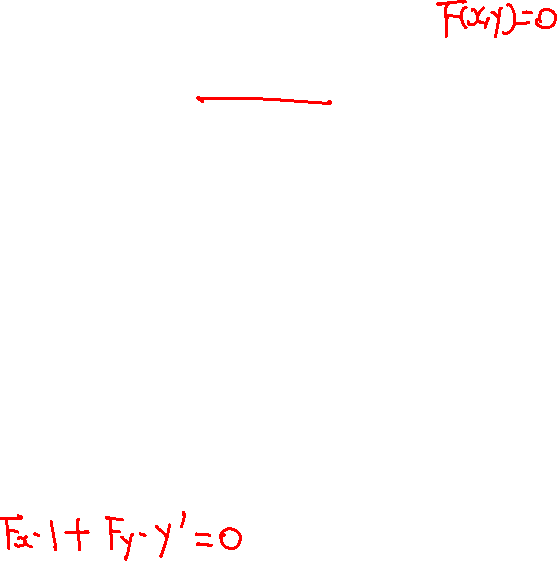 F(x,y)=0
Fx·1+Fy·y'=0